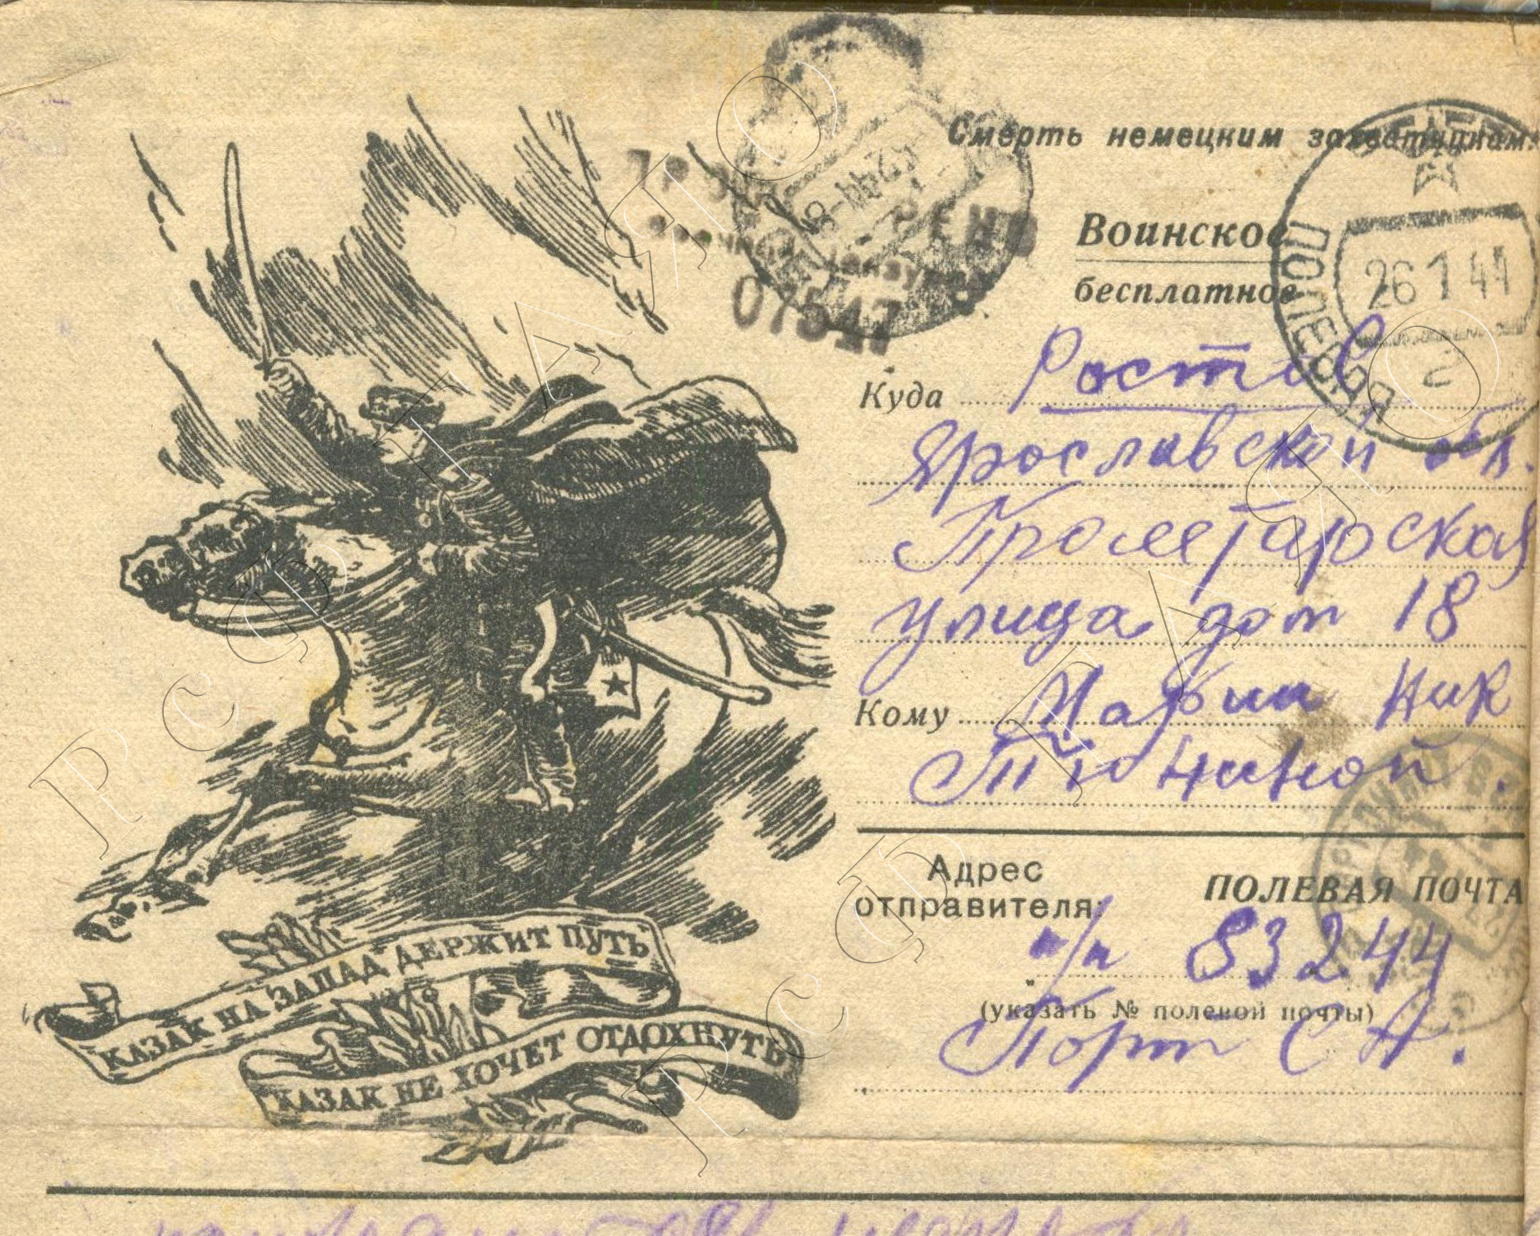 Смерть немецким захватчикам!
Воинское
бесплатное
07547
26 1 44
2
ПОЛЕВАЯ
Куда Ростов
Ярославской обл.
Пролетарская
улица дом 18
Кому Марии Ник
Тюниной.
Адрес
отправителя:
ПОЛЕВАЯ ПОЧТА
п/п 83244
(указать № полевой почты)
Порт С А.
КАЗАК НА ЗАПАД ДЕРЖИТ ПУТЬ
КАЗАК НЕ ХОЧЕТ ОТДОХНУТЬ